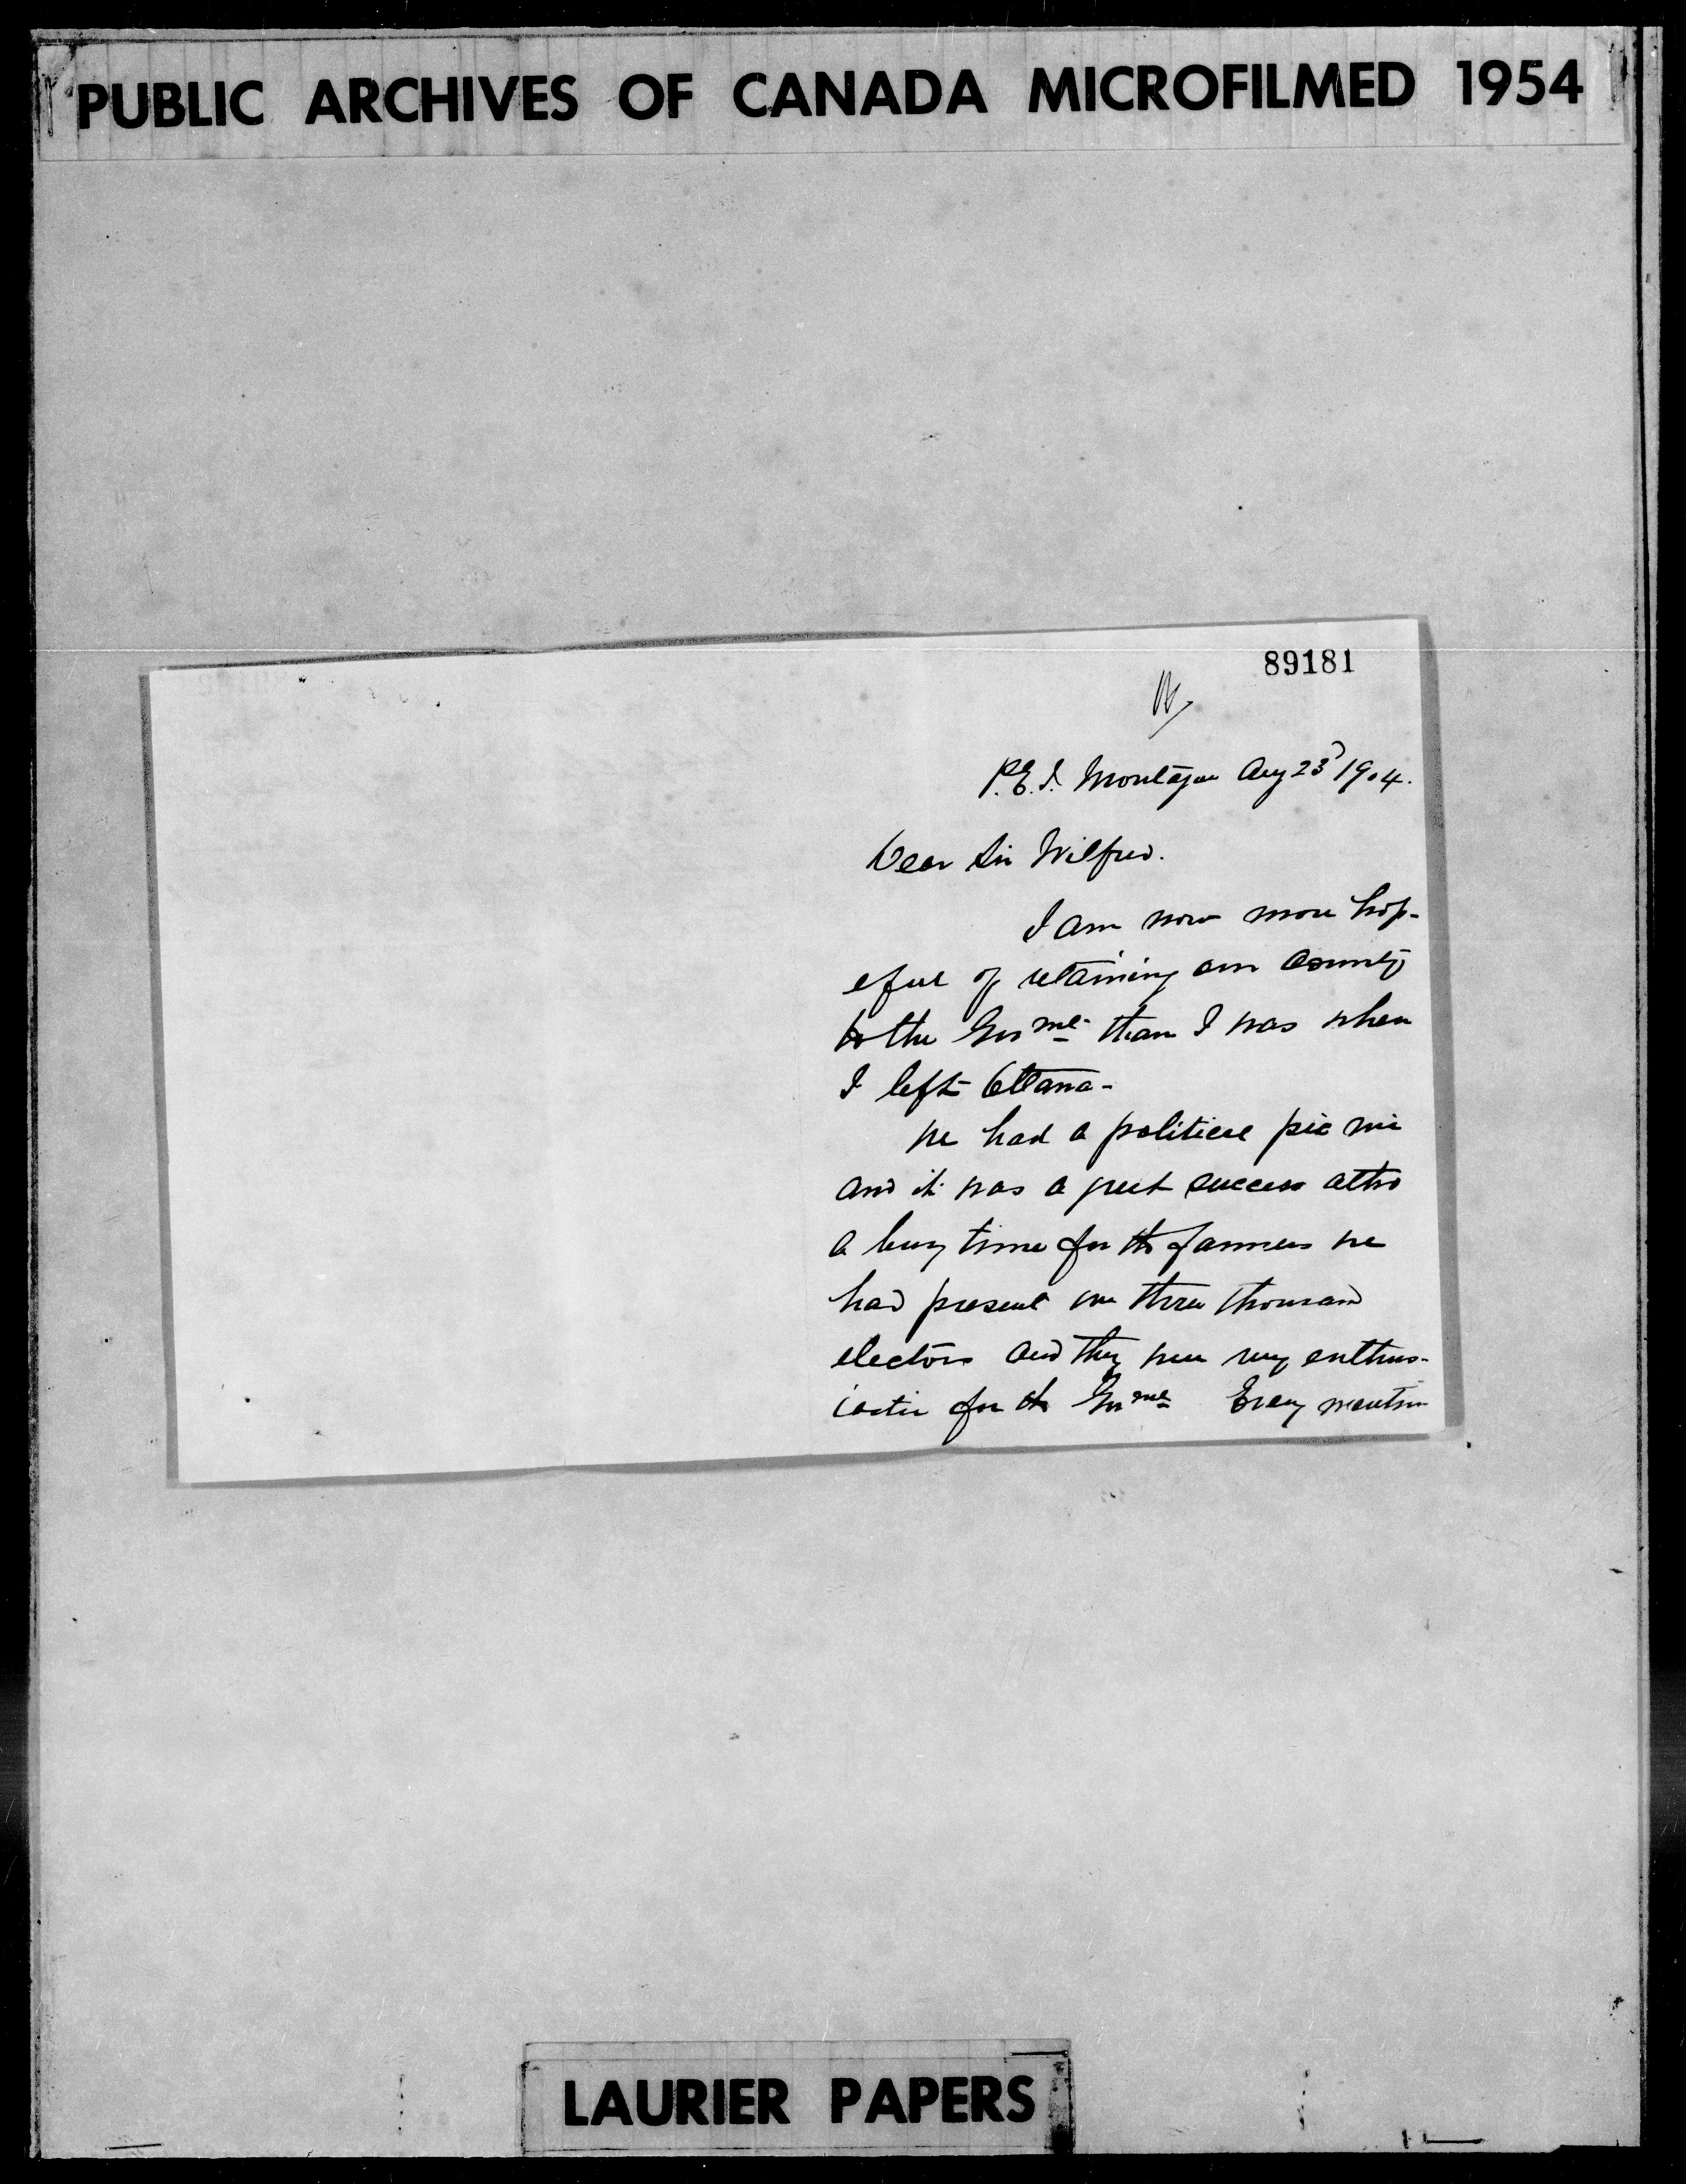 PUBLIC ARCHIVES OF CANADA MICROFILMED 1954
89181
P.E.I. Montague Aug 23d 1904.
Dear Sir Wilfred.
I am now more hop-
eful of retaining our County
to the Govmt than I was when
I left Ottawa-
We had a political pic nic
and it was a great success altho
a busy time for the farmers we
had present over three thousand
electors and they were very enthus-
iastic for the Govmt Every mention
LAURIER PAPERS